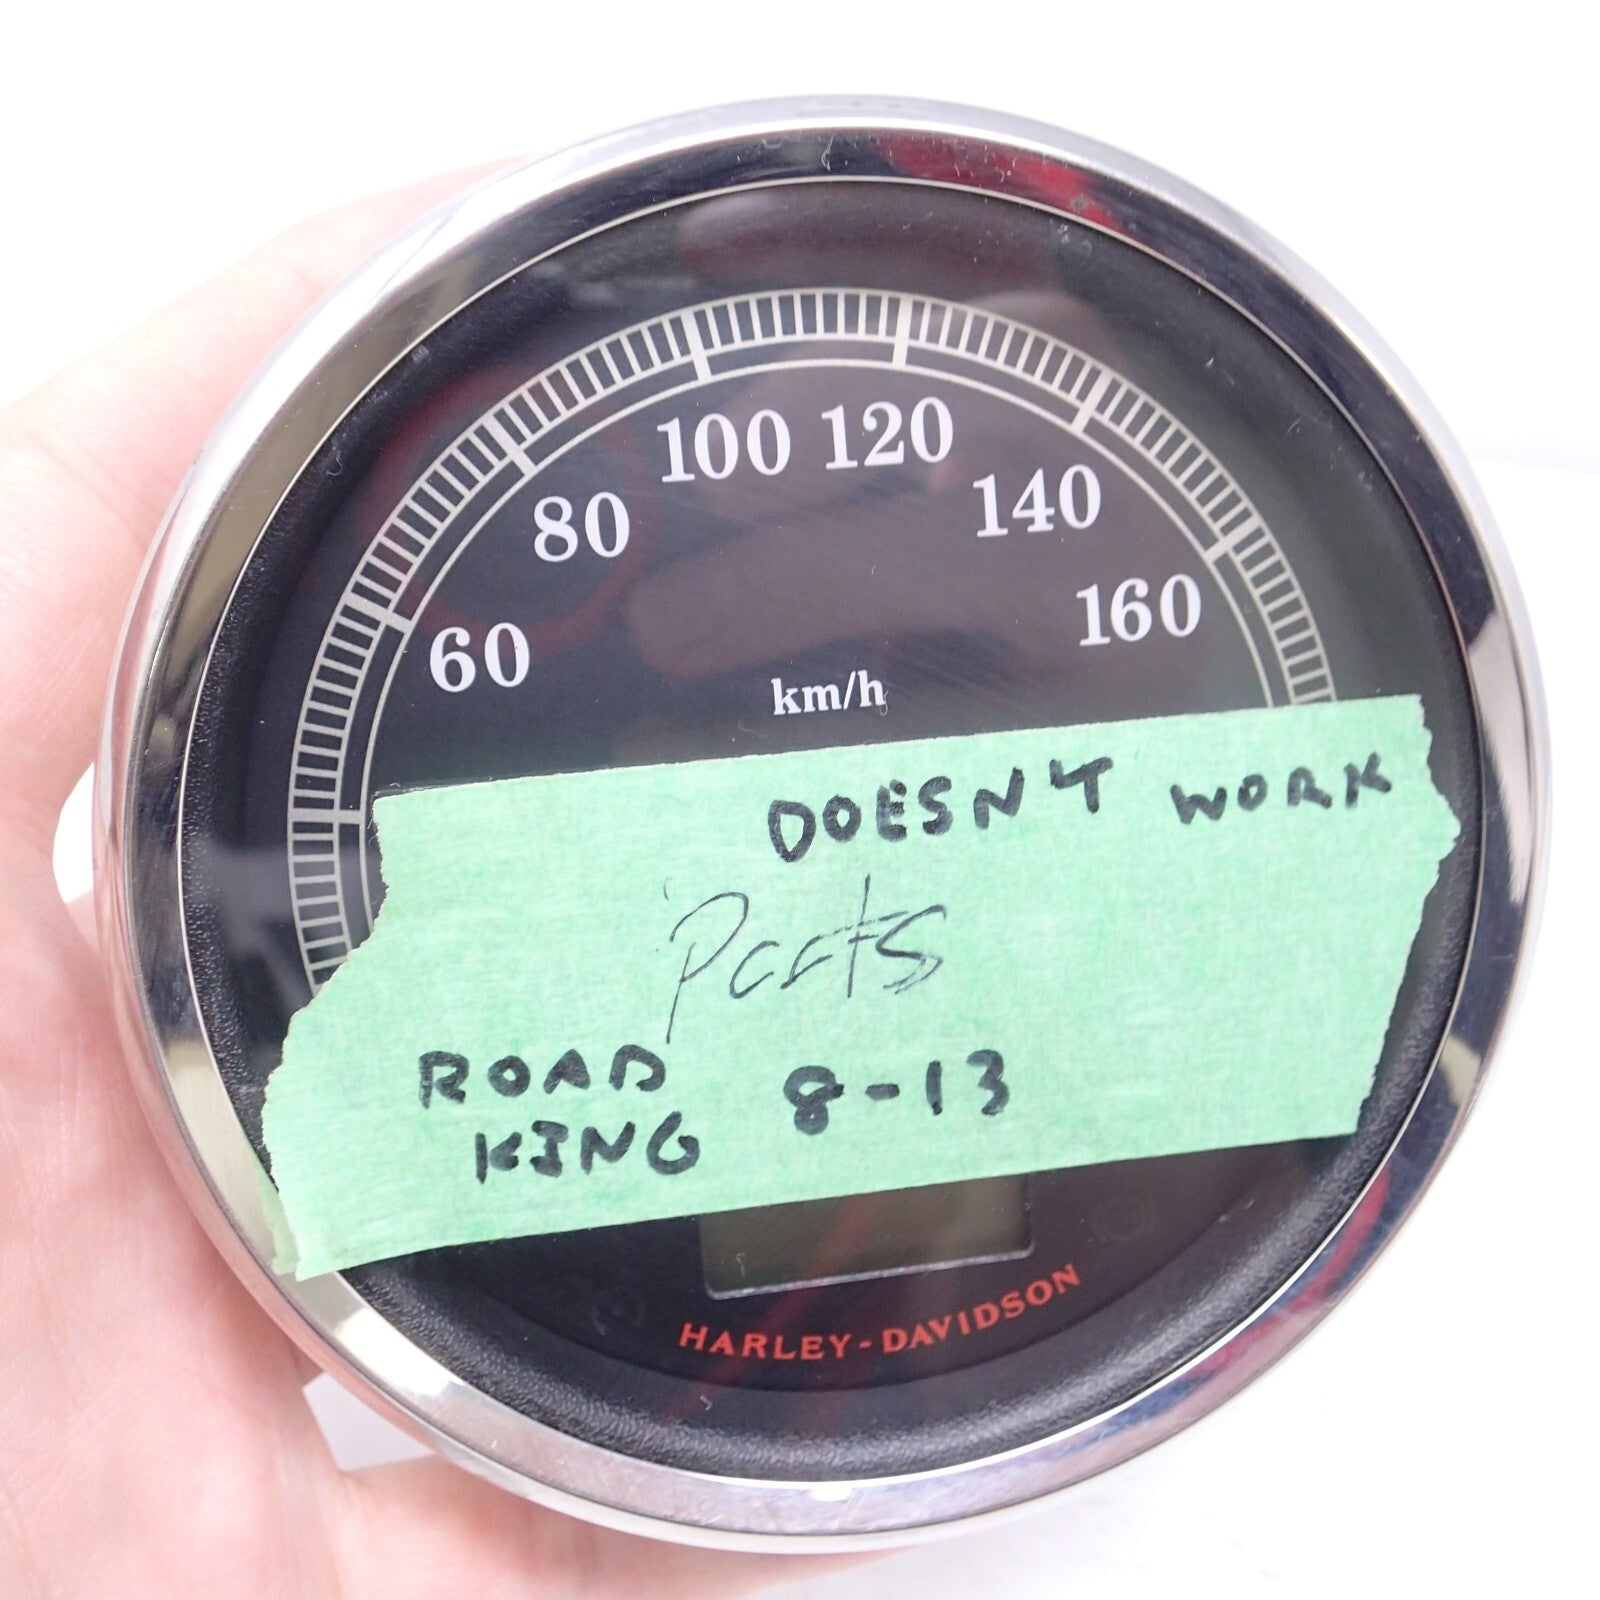 100 120
80 140
60 160
km/h
DOESN'T WORK
Parts
ROAD 8-13
KING
HARLEY-DAVIDSON